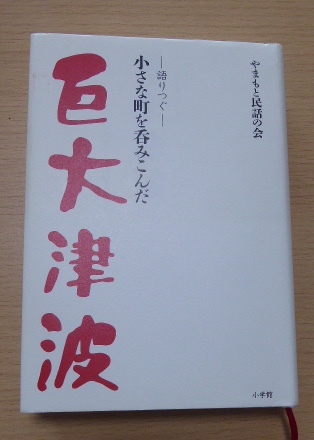 やまもと民話の会
―語りつぐ―
小さな町を呑みこんだ
巨大津波
小学館